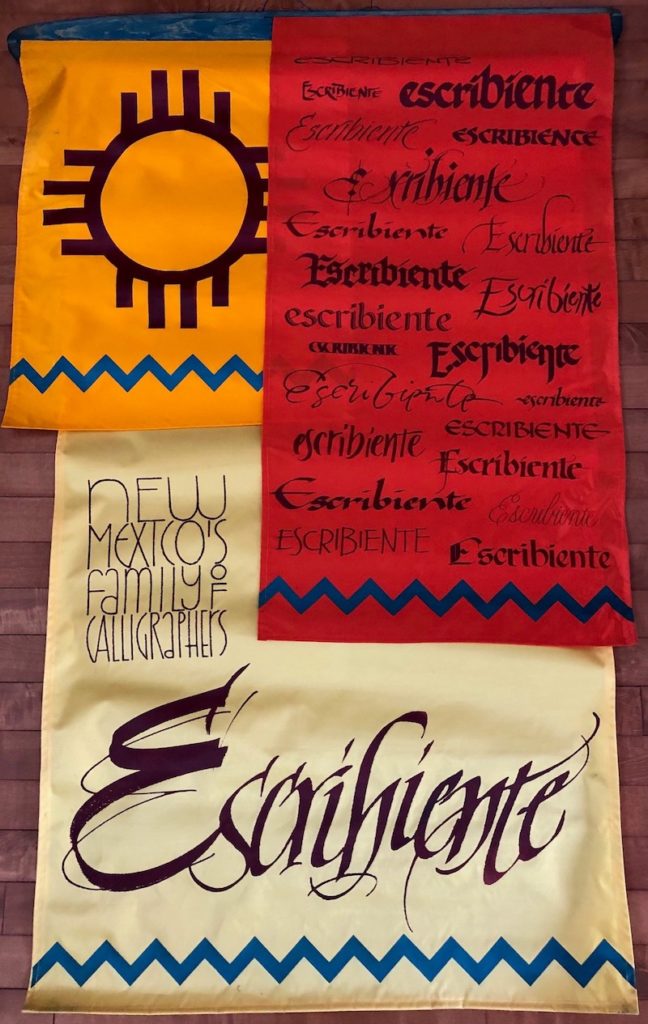 ESCRIBIENTE
ESCRIBIENTE escribiente
Escribiente ESCRIBIENTE
Escribiente
Escribiente Escribiente
Escribiente Escribiente
escribiente
ESCRIBIENTE Escribiente
Escribiente escribiente
escribiente ESCRIBIENTE
Escribiente
Escribiente Escribiente
ESCRIBIENTE Escribiente
NEW
MEXICO'S
family OF
CALLIGRAPHERS
Escribiente